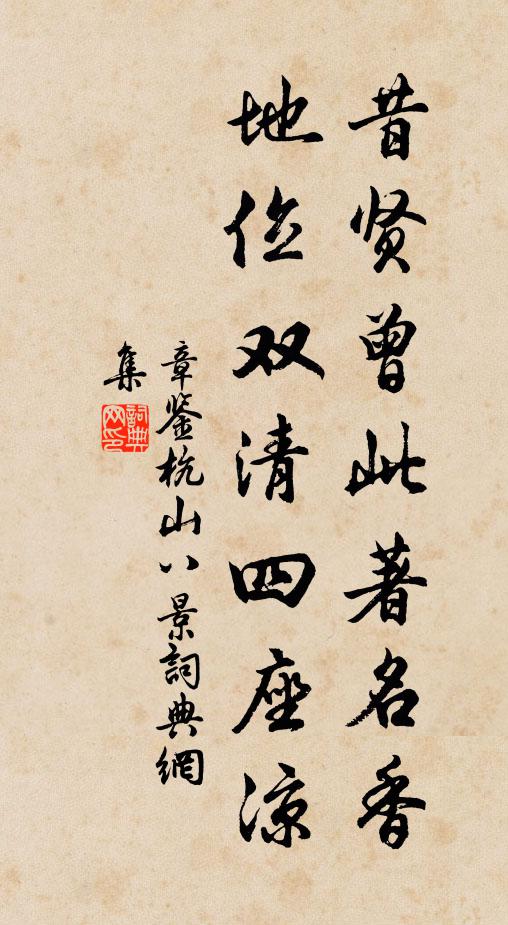 昔贤曾此著名香
地位双清四座凉
章鉴杭山八景詞典網
集
詞典网印